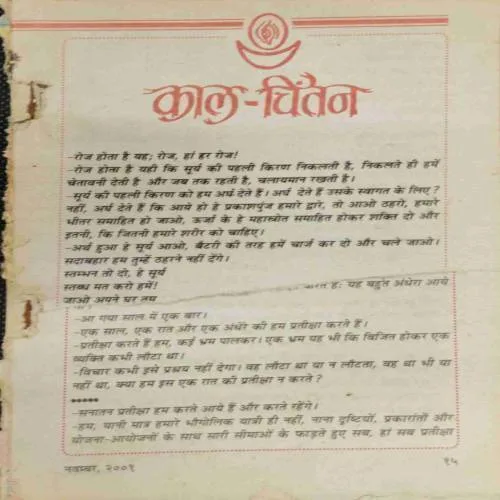 काल-चिंतन
-रोज होता है यह; रोज, हां हर रोज!
-रोज होता है यही कि सूर्य की पहली किरण निकलती है, निकलते ही हमें
चेतावनी देती है और जब तक रहती है, चलायमान रखती है।
-सूर्य की पहली किरण को हम अर्घ देते हैं। अर्घ देते हैं उसके स्वागत के लिए?
नहीं, अर्घ देते हैं कि आये हो हे प्रकाशपुंज हमारे द्वारे, तो आओ ठहरो, हमारे
भीतर समाहित हो जाओ, ऊर्जा के हे महास्रोत समाहित होकर शक्ति दो और
इतनी, कि जितनी हमारे शरीर को चाहिए।
-अर्थ हुआ हे सूर्य आओ, बैटरी की तरह हमें चार्ज कर दो और चले जाओ।
सदाबहार हम तुम्हें ठहरने नहीं देंगे।
स्तम्भन तो दो, हे सूर्य
स्तब्ध मत करो हमें!
करत हैं: यह बहुत अंधेरा आये
जाओ अपने घर तय
-आ गया साल में एक बार।
-एक साल, एक रात और एक अंधेरे की हम प्रतीक्षा करते हैं।
-प्रतीक्षा करते हैं हम, कई भ्रम पालकर। एक भ्रम यह भी कि विजित होकर एक
व्यक्ति कभी लौटा था।
-विचार कभी इसे प्रश्रय नहीं देगा। वह लौटा था या न लौटता, वह था भी या
नहीं था, क्या हम इस एक रात की प्रतीक्षा न करते?
*****
-सनातन प्रतीक्षा हम करते आये हैं और करते रहेंगे।
-हम, यानी मात्र हमारे भौगोलिक यात्री ही नहीं, नाना दृष्टियों, प्रकारांतों और
योजना-आयोजनों के साथ सारी सीमाओं के फाड़ते हुए सब, हां सब प्रतीक्षा
नवम्बर, २००१
१५